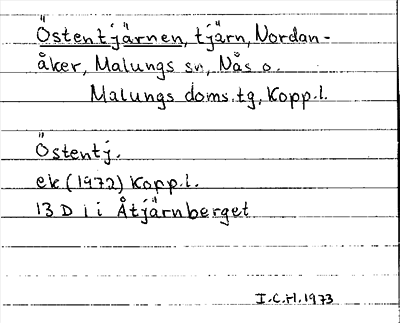 Östentjärnen, tjärn, Nordan-
åker, Malungs sn, Nås o.
Malungs doms.tg, Kopp.l.
Östentj.
ek (1972) Kopp.l.
13 D 1 i Åtjärnberget
I.C.H. 1973